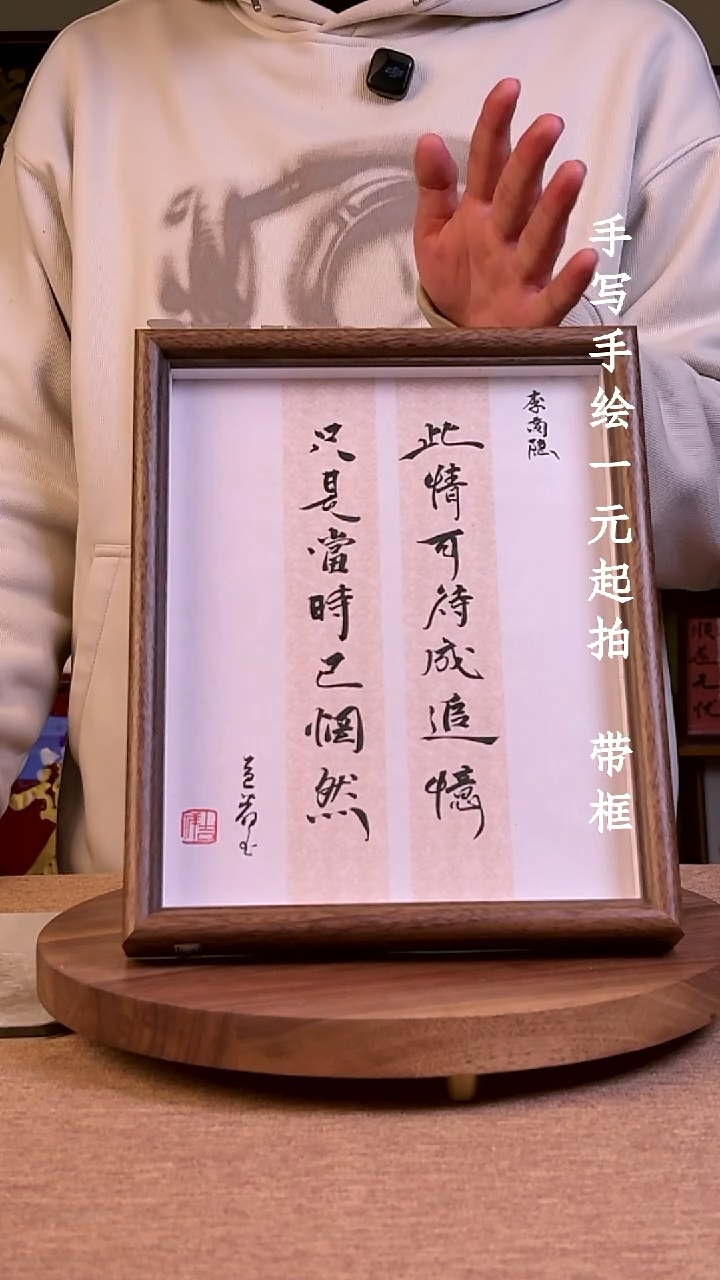 李商隐
此情可待成追憶
只是當時已惘然
手写手绘一元起拍 带框